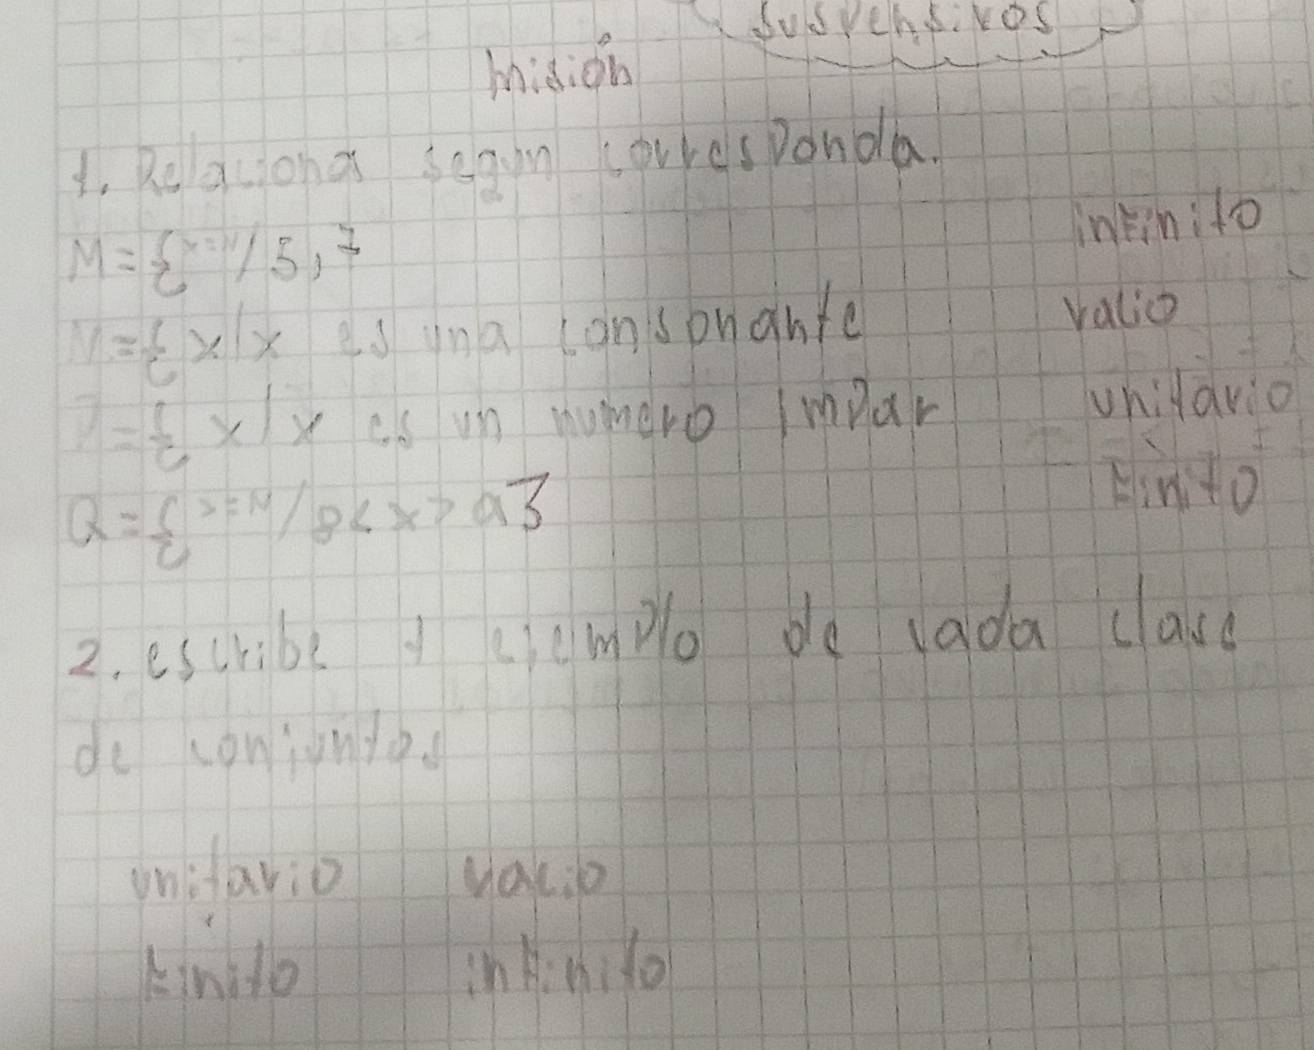 suspensivos
misión
1. Relaciona segun corresponda.
M={ /5,7
infinito
={x/x es una consonante
vacio
={x/x es un numero impar
unitario
Q={ /8<x>
finito
2. escribe 1 ejemplo de cada clase
de conjuntos
unitario vacio
finito infinito